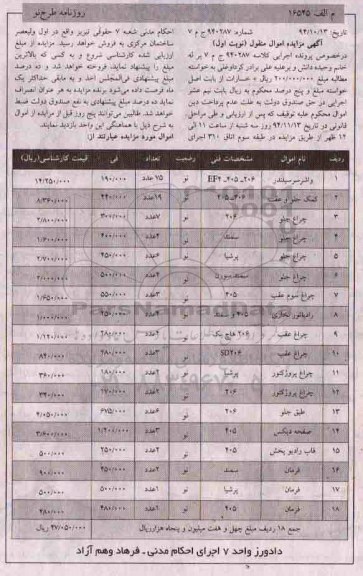 م الف ۱۶۵۴۵
روزنامه طرح نو
تاریخ: ۹۴/۱۰/۱۳ شماره: ۹۴۰۲۸۷ ج م ۷
آگهی مزایده اموال منقول (نوبت اول)
درخصوص پرونده اجرایی کلاسه ۹۴۰۲۸۷ ج م ۷ بر له
خانم وحیده دانش و برعلیه علی برادر کردداوغلی به خواسته
مطالبه مبلغ ۲۰۰/۰۰۰/۰۰۰ ریال + خسارات از بابت اصل
خواسته مبلغ و پنج درصد محکوم به ریال بابت نیم عشر
اجرایی در حق صندوق دولت به علت عدم پرداخت دین
اموال محکوم علیه توقیف که پس از ارزیابی و طی مراحل
قانونی در تاریخ ۹۴/۱۱/۱۳ روز سه شنبه از ساعت ۱۱ الی
۱۲ ظهر از طریق مزایده در طبقه سوم اتاق ۳۱۰ اجرای
احکام مدنی شعبه ۷ حقوقی تبریز واقع در اول ولیعصر
ساختمان مرکزی به فروش خواهد رسید. مزایده از مبلغ
ارزیابی شده کارشناسی شروع و به کسی که بالاترین
مبلغ را پیشنهاد نماید، فروخته خواهد شد. و ده درصد
مبلغ پیشنهادی فی‌المجلس اخذ و به مابقی حداکثر یک
ماه فرصت داده می‌شود برنده مزایده به هر عنوان انصراف
نماید ده درصد مبلغ پیشنهادی به نفع صندوق دولت ضبط
خواهد شد. طالبین می‌توانند پنج روز قبل از مزایده از اموال
به شرح ذیل با هماهنگی این واحد بازدید نمایند.
اموال مورد مزایده عبارتند از:
ردیف نام اموال مشخصات فنی وضعیت تعداد فی قیمت کارشناسی(ریال)
۱ وایرسرسیلندر ۲۰۶ـ ۴۰۵ـ EF۴ نو ۷۵ عدد ۱۹۰/۰۰۰ ۱۴/۲۵۰/۰۰۰
۲ کمک جلو و عقب ۲۰۶ـ۴۰۵ نو ۱۹عدد ۴۴۰/۰۰۰ ۸/۳۶۰/۰۰۰
۳ چراغ جلو ۲۰۶ نو ۷عدد
۴ چراغ جلو سمند نو ۴عدد ۴۰۰/۰۰۰ ۱/۶۰۰/۰۰۰
۵ چراغ جلو پرشیا نو ۶عدد ۴۵۰/۰۰۰ ۲/۷۰۰/۰۰۰
۶ چراغ جلو سمندسورن نو ۵۰۰/۰۰۰
۷ چراغ سوم عقب ۴۰۵ نو ۳عدد ۵۵۰/۰۰۰ ۱/۶۵۰/۰۰۰
۸ رادیاتور بخاری ۴۰۵ نو
۹ چراغ عقب ۲۰۶ هاچ بک نو ۴عدد ۲۸۰/۰۰۰ ۱/۱۲۰/۰۰۰
۱۰ چراغ عقب SD۲۰۶ نو ۳عدد ۲۸۰/۰۰۰ ۸۴۰/۰۰۰
۱۱ چراغ پروژکتور پرشیا نو ۲عدد ۱۸۰/۰۰۰ ۳۶۰/۰۰۰
۱۲ چراغ پروژکتور ۲۰۶ نو ۲عدد ۱۷۰/۰۰۰ ۳۴۰/۰۰۰
۱۳ طبق جلو ۲۰۶ نو ۶عدد ۶۷۵/۰۰۰ ۴/۰۵۰/۰۰۰
۱۴ صفحه دیکس ۴۰۵ نو ۳عدد ۱/۲۰۰/۰۰۰ ۳/۶۰۰/۰۰۰
۱۵ قاب رادیو پخش ۴۰۵ نو ۲عدد ۲۵۰/۰۰۰ ۵۰۰/۰۰۰
۱۶ فرمان سمند نو ۲عدد ۴۵۰/۰۰۰ ۹۰۰/۰۰۰
۱۷ فرمان پرشیا نو ۱عدد ۵۰۰/۰۰۰ ۵۰۰/۰۰۰
۱۸ فرمان ۴۰۵ نو ۱عدد ۴۸۰/۰۰۰ ۴۸۰/۰۰۰
جمع ۱۸ ردیف مبلغ چهل و هفت میلیون و پنجاه هزارریال ۴۷/۰۵۰/۰۰۰ ریال
دادورز واحد ۷ اجرای احکام مدنی ـ فرهاد وهم آزاد